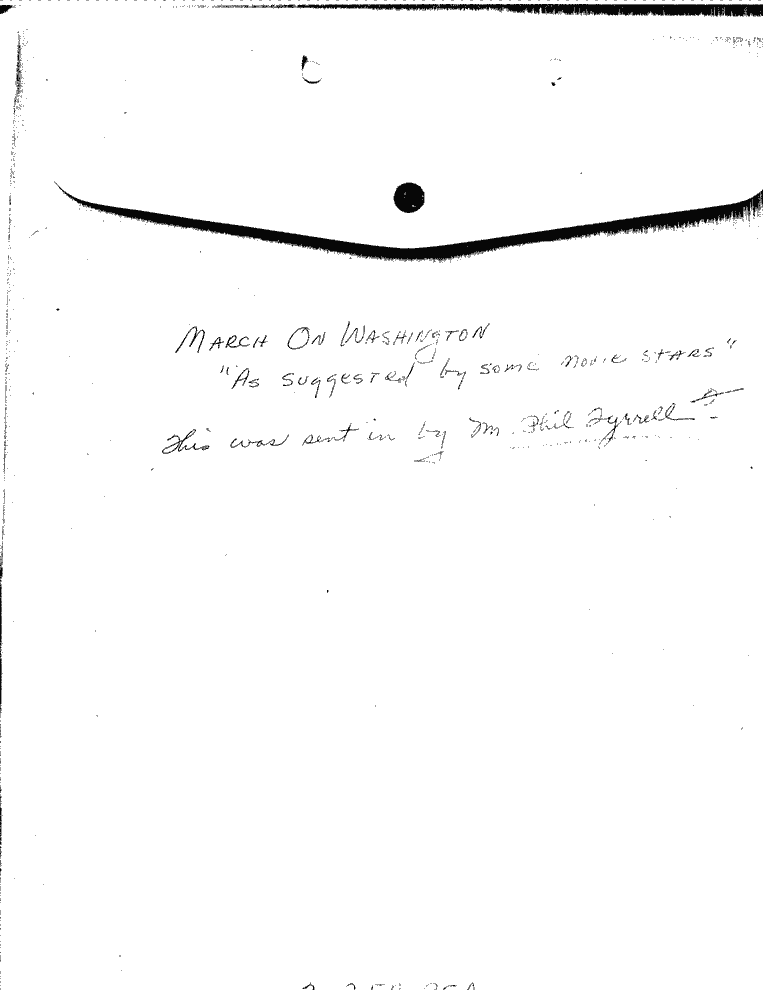 MARCH ON WASHINGTON
"As suggested by some movie stars"
This was sent in by Mr. Phil Tyrrell ?